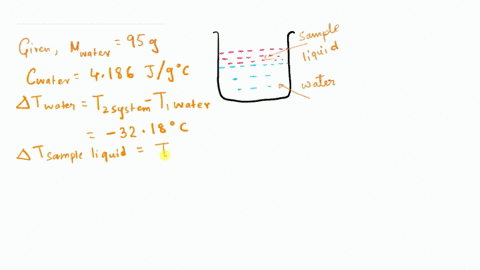 Given, Mwater = 95 g
Cwater = 4.186 J/g°C
ΔTwater = T2system - T1water
= -32.18°C
ΔTsample liquid = T
sample
liquid
water